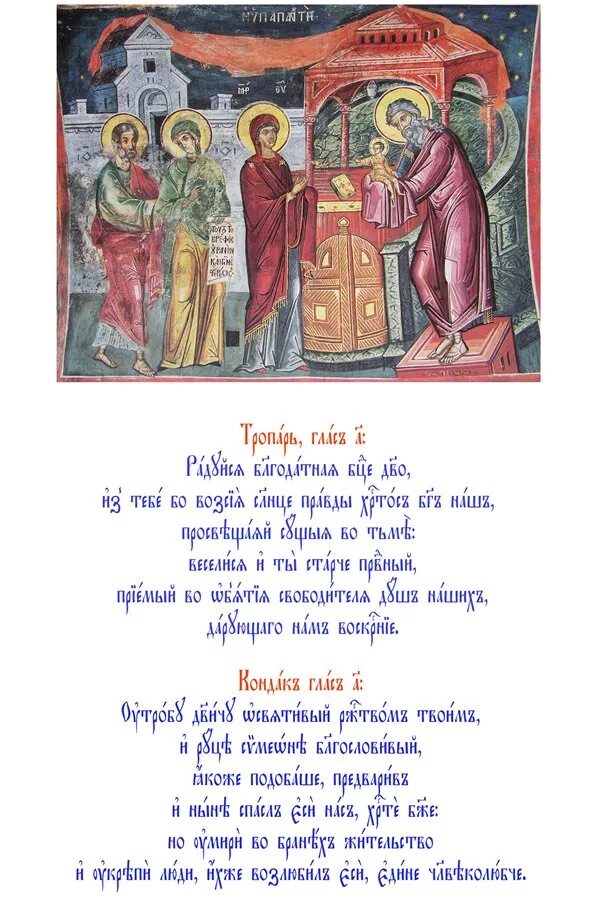 ἩΥΠΑΠΑΝΤῊ
ΜΗΡ ΘΥ
ΤΟΥΤΟ
ΒΡΕΦΟΣ
ΟΥΡΑΝΟΝ
Тропа́рь, гла́съ а҃:
Ра́дꙋйсѧ бл҃года́тнаѧ бц҃е дв҃о,
и҆з̾ тебє́ бо возсїѧ̀ сл҃нце пра́вды хрⷭ҇то́съ бг҃ъ на́шъ,
просвѣща́ѧй сꙋ́щыѧ во тьмѣ̀:
весели́сѧ и҆ ты̀ ста́рче првⷣный,
прїе́мый во ѡ҆б̾ѧ́тїѧ свободи́телѧ дꙋ́шъ на́шихъ,
да́рꙋющаго на́мъ воскрⷭ҇нїе.
Конда́къ гла́съ а҃:
Оу҆тро́бꙋ дв҃и́чꙋ ѡ҆свѧти́вый ржⷭ҇тво́мъ твои́мъ,
и҆ рꙋ́цѣ сѷмеѡ́нѣ блг҃ослови́вый,
ꙗ҆́коже подоба́ше, предвари́въ
и҆ ны́нѣ спа́слъ є҆сѝ на́съ, хрⷭ҇тѐ бж҃е:
но оу҆мирѝ во бра́нѣхъ жи́тельство
и҆ оу҆крѣпѝ лю́ди, и҆̀хже возлюби́лъ є҆сѝ, є҆ди́не чл҃вѣколю́бче.